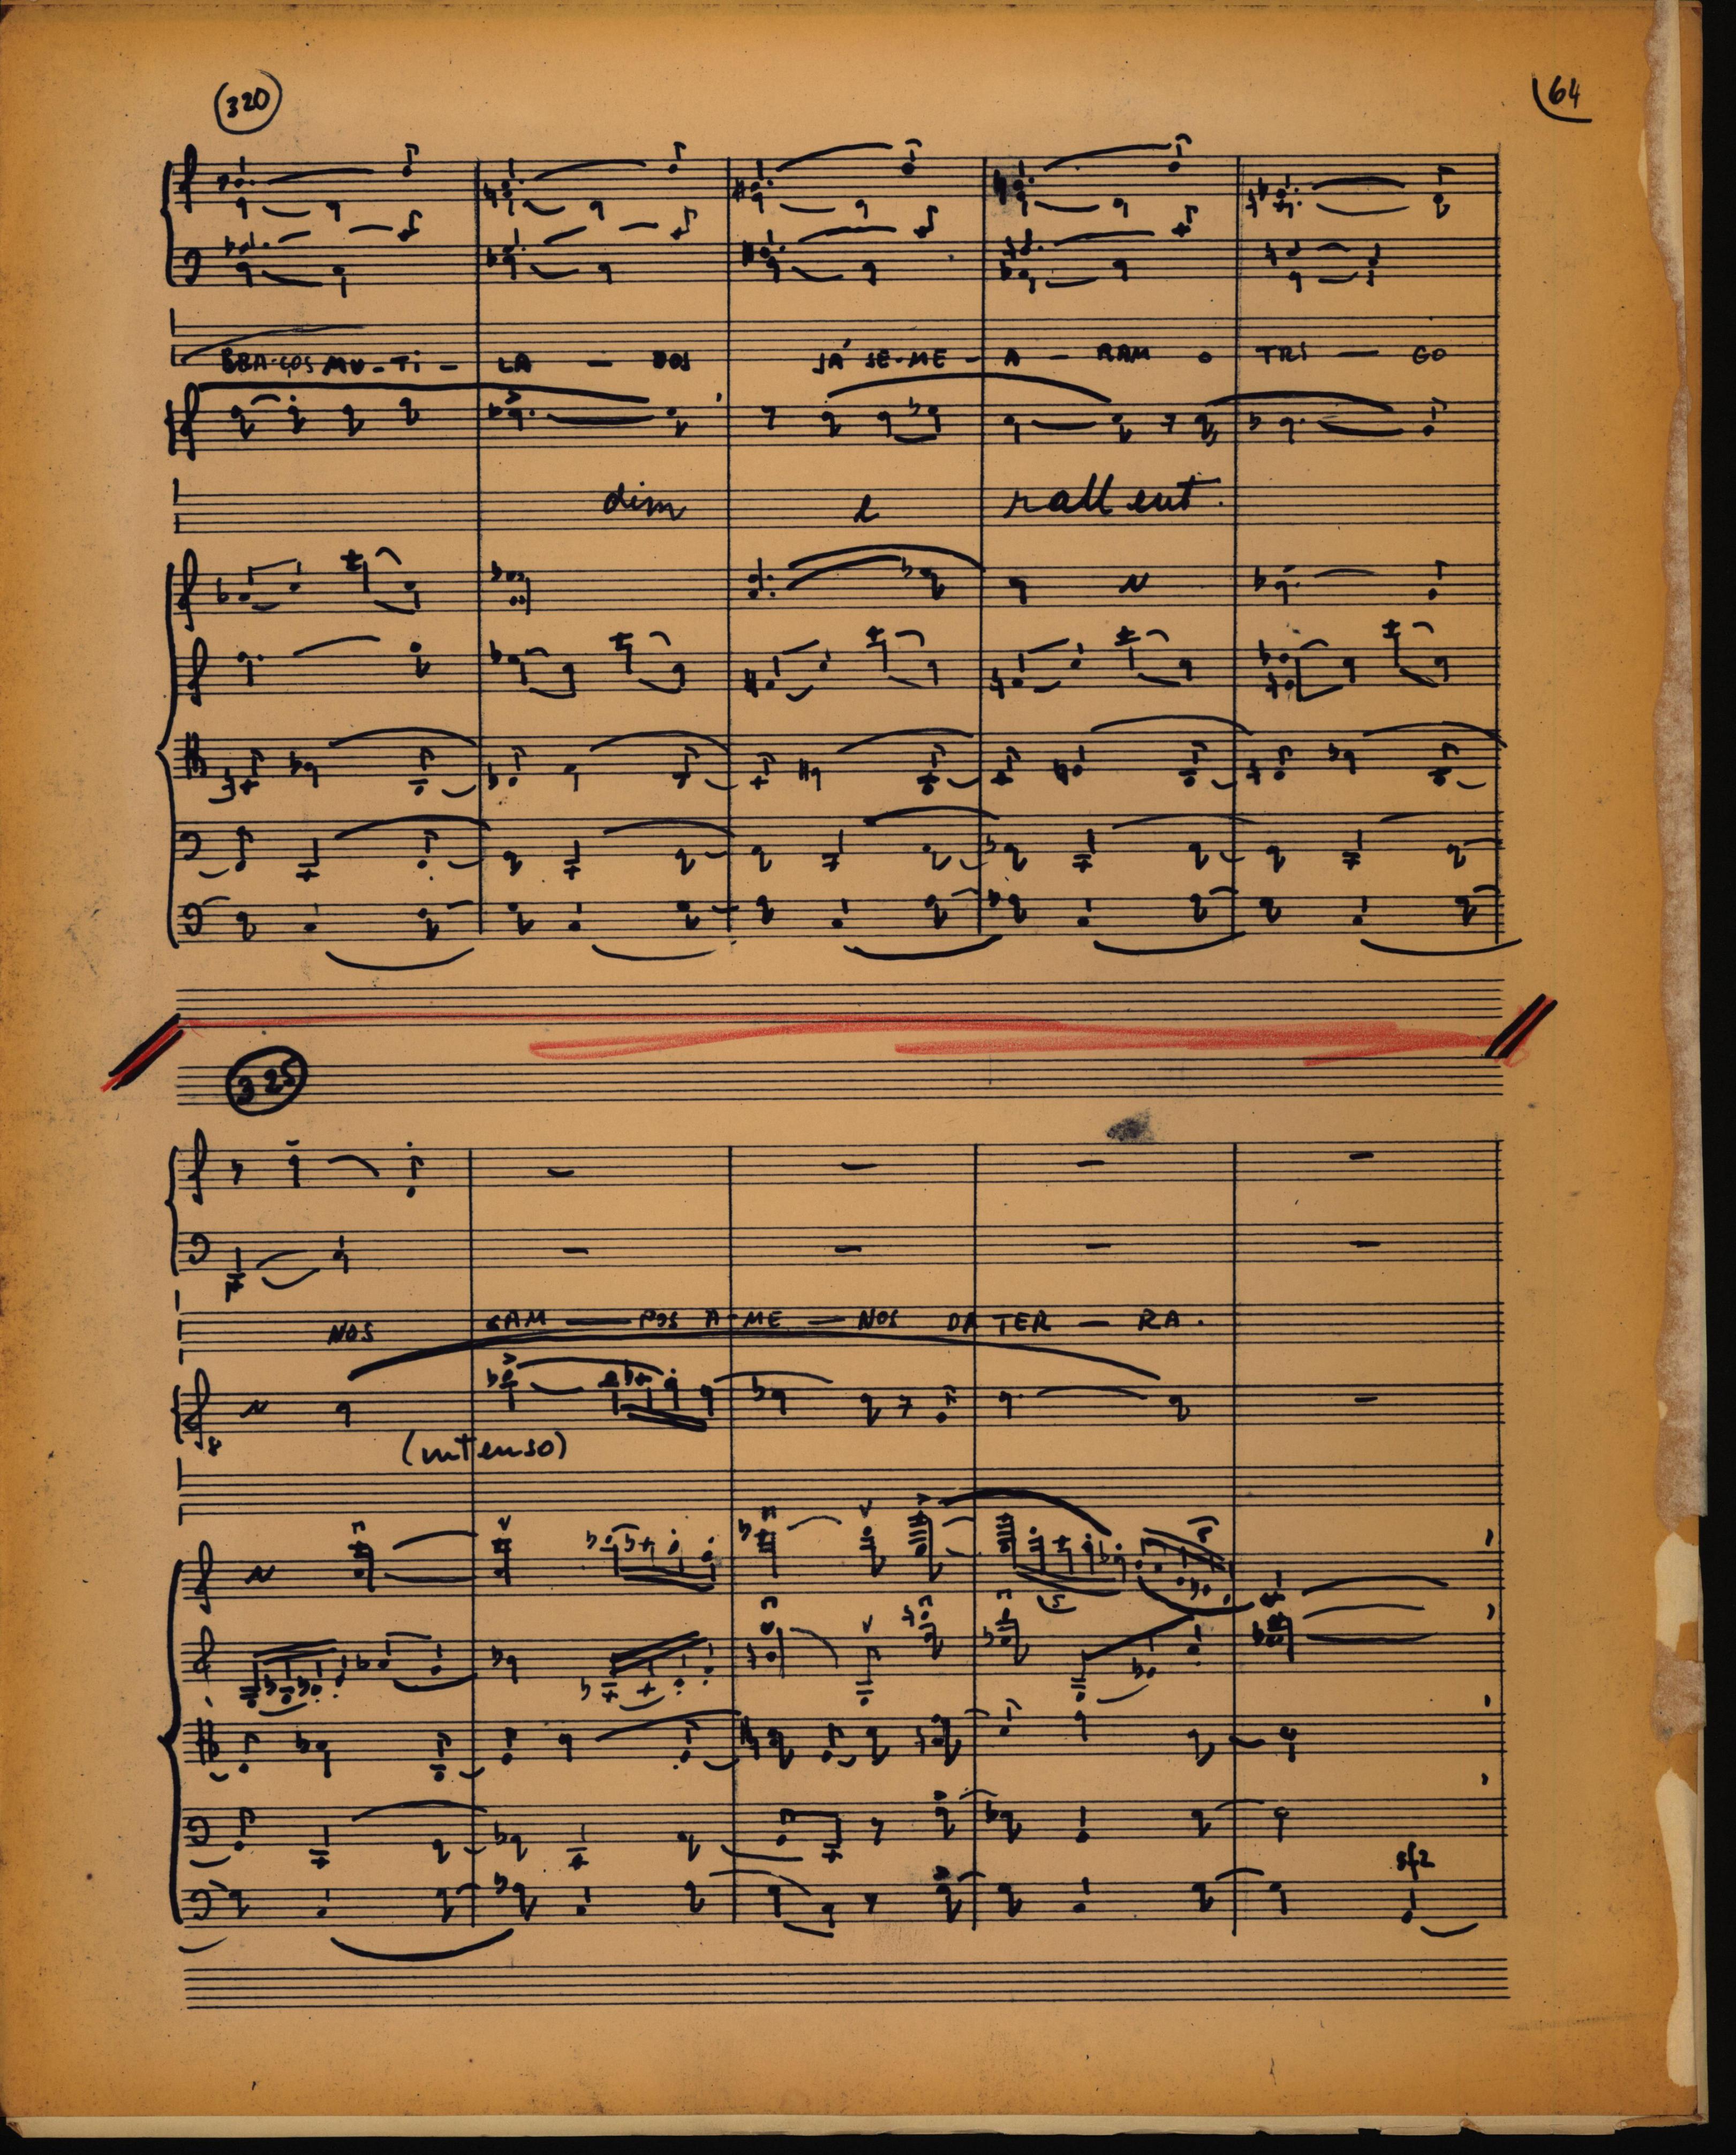 320
64
BRA-ÇOS MU-TI- LA — DOS JÁ SE-ME - A - RAM O TRI — GO
dim e rallent.
325
NOS CAM — POS A-ME — NOS DA TER — RA.
8
(intenso)
5
sfz